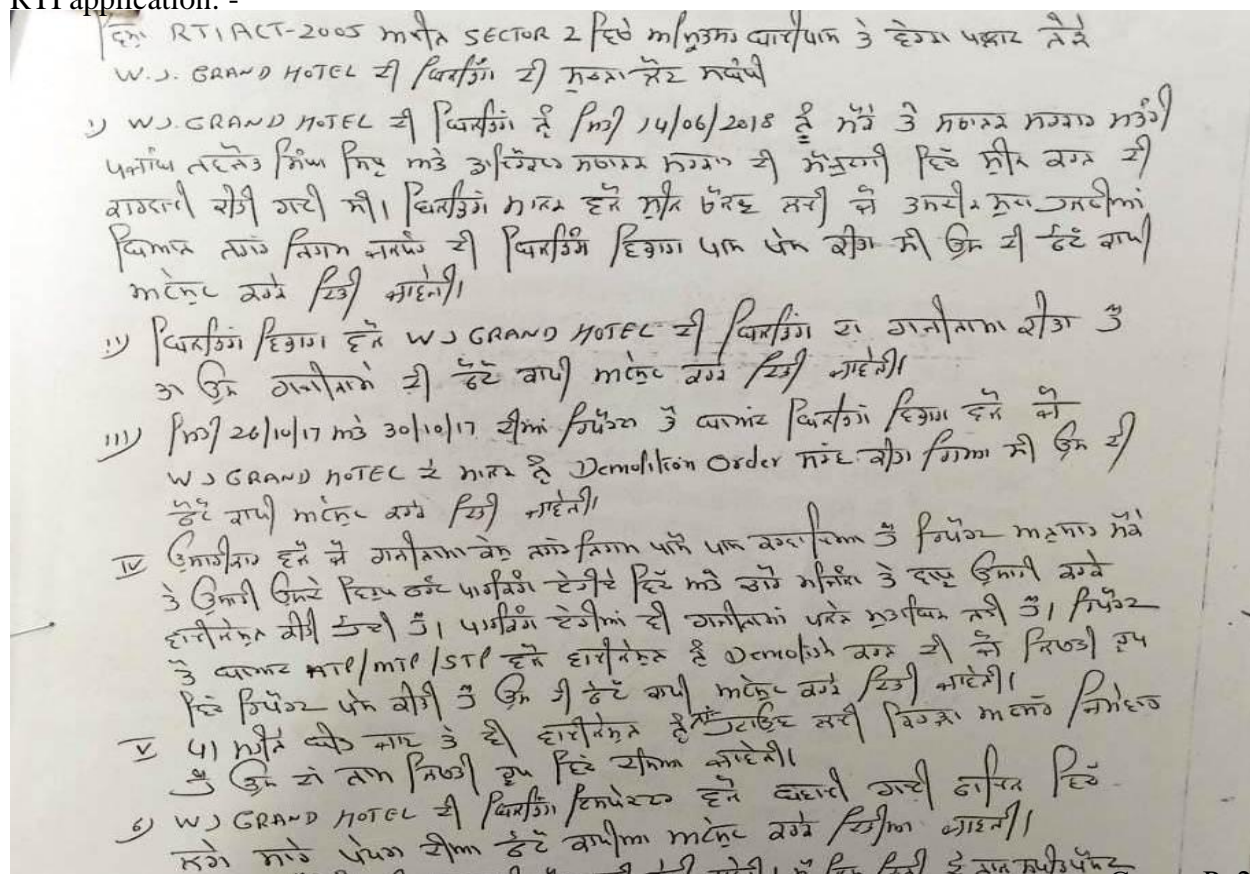 RTI application: -
ਵਿਸ਼ਾ RTI ACT-2005 ਅਧੀਨ SECTOR 2 ਵਿਚੋਂ ਅੰਮ੍ਰਿਤਸਰ ਬਾਈਪਾਸ ਤੇ ਨੇੜੇ
W.J. GRAND HOTEL ਦੀ ਬਿਲਡਿੰਗ ਦੀ ਸੂਚਨਾ ਲੈਣ ਸਬੰਧੀ
i) W.J. GRAND HOTEL ਦੀ ਬਿਲਡਿੰਗ ਨੂੰ ਮਿਤੀ 14/06/2018 ਨੂੰ ਮੌਕੇ ਤੇ ਸਥਾਨਕ ਸਰਕਾਰ ਮੰਤਰੀ
ਪੰਜਾਬ ਨਵਜੋਤ ਸਿੰਘ ਸਿਧੂ ਅਤੇ ਡਾਇਰੈਕਟਰ ਸਥਾਨਕ ਸਰਕਾਰ ਦੀ ਮੌਜੂਦਗੀ ਵਿਚ ਸੀਲ ਕਰਨ ਦੀ
ਕਾਰਵਾਈ ਕੀਤੀ ਗਈ ਸੀ। ਬਿਲਡਿੰਗ ਮਾਲਕ ਵਲੋਂ ਸੀਲ ਖੋਲਣ ਲਈ ਜੋ ਤਸਦੀਕ ਸ਼ੁਦਾ ਹਲਫੀਆ
ਬਿਆਨ ਨਗਰ ਨਿਗਮ ਜਲੰਧਰ ਦੀ ਬਿਲਡਿੰਗ ਵਿਭਾਗ ਪਾਸ ਪੇਸ਼ ਕੀਤਾ ਸੀ ਉਸ ਦੀ ਫੋਟੋ ਕਾਪੀ
ਅਟੈਸਟ ਕਰਕੇ ਦਿਤੀ ਜਾਵੇ ਜੀ।
ii) ਬਿਲਡਿੰਗ ਵਿਭਾਗ ਵਲੋਂ W J GRAND HOTEL ਦੀ ਬਿਲਡਿੰਗ ਦਾ ਰਾਜੀਨਾਮਾ ਕੀਤਾ ਹੈ
ਤਾ ਉਸ ਰਾਜੀਨਾਮੇ ਦੀ ਫੋਟੋ ਕਾਪੀ ਅਟੈਸਟ ਕਰਕੇ ਦਿਤੀ ਜਾਵੇ ਜੀ।
iii) ਮਿਤੀ 26/10/17 ਅਤੇ 30/10/17 ਦੀਆਂ ਰਿਪੋਰਟ ਤੋਂ ਬਾਅਦ ਬਿਲਡਿੰਗ ਵਿਭਾਗ ਵਲੋਂ ਜੋ
W J GRAND HOTEL ਦੇ ਮਾਲਕ ਨੂੰ Demolition Order ਕੀਤਾ ਗਿਆ ਸੀ ਉਸ ਦੀ
ਫੋਟੋ ਕਾਪੀ ਅਟੈਸਟ ਕਰਕੇ ਦਿਤੀ ਜਾਵੇ ਜੀ।
IV ਉਸਾਰੀਕਾਰ ਵਲੋਂ ਜੋ ਰਾਜੀਨਾਮਾ ਕੇਸ ਨਗਰ ਨਿਗਮ ਪਾਸੋਂ ਪਾਸ ਕਰਵਾਇਆ ਹੈ ਰਿਪੋਰਟ ਅਨੁਸਾਰ ਮੌਕੇ
ਤੇ ਉਸਾਰੀ ਪਾਰਕਿੰਗ ਏਰੀਏ ਵਿਚ ਅਤੇ ਚਾਰੇ ਮੰਜਿਲਾ ਤੇ ਵਾਧੂ ਉਸਾਰੀ ਕਰਕੇ
ਵਾਈਲੇਸ਼ਨ ਕੀਤੀ ਹੋਈ ਹੈ। ਪਾਰਕਿੰਗ ਏਰੀਆ ਵੀ ਰਾਜੀਨਾਮਾ ਪਲੈਨ ਮੁਤਾਬਿਕ ਨਹੀ ਹੈ। ਰਿਪੋਰਟ
ਤੋਂ ਬਾਅਦ ATP/MTP/STP ਵਲੋਂ ਵਾਈਲੇਸ਼ਨ ਨੂੰ Demolish ਕਰਨ ਦੀ ਜੋ ਲਿਖਤੀ ਰੂਪ
ਵਿਚ ਰਿਪੋਰਟ ਪੇਸ਼ ਕੀਤੀ ਹੈ ਉਸ ਦੀ ਫੋਟੋ ਕਾਪੀ ਅਟੈਸਟ ਕਰਕੇ ਦਿਤੀ ਜਾਵੇ ਜੀ।
V ਸੀਲ ਜਾਣ ਤੇ ਵੀ ਵਾਈਲੇਸ਼ਨ ਨੂੰ ਨਾ ਹਟਾਉਣ ਲਈ ਕਿਹੜਾ ਅਫਸਰ ਜਿਮੇਵਾਰ
ਹੈ ਉਸ ਦਾ ਨਾਮ ਲਿਖਤੀ ਰੂਪ ਵਿਚ ਦਸਿਆ ਜਾਵੇ ਜੀ।
6) W J GRAND HOTEL ਦੀ ਬਿਲਡਿੰਗ ਇਸਪੈਕਟਰ ਵਲੋਂ ਬਣਾਈ ਗਈ ਫਾਇਲ ਵਿਚ
ਲਗੇ ਸਾਰੇ ਪੇਪਰਾ ਦੀਆ ਫੋਟੋ ਕਾਪੀਆ ਅਟੈਸਟ ਕਰਕੇ ਦਿਤੀਆ ਜਾਵਣ ਜੀ।